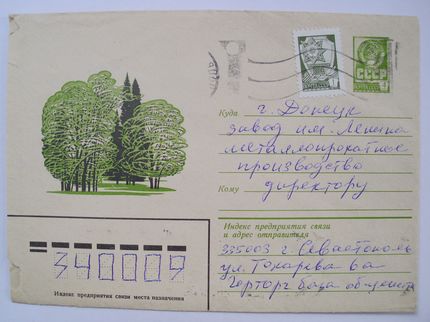 СССР
Куда г. Донецк
завод им. Ленина
металлопрокатное
производство
Кому директору
Индекс предприятия связи
и адрес отправителя
335003 г. Севастополь
ул. Токарева 6а
Горторг база
340009
Индекс предприятия связи места назначения